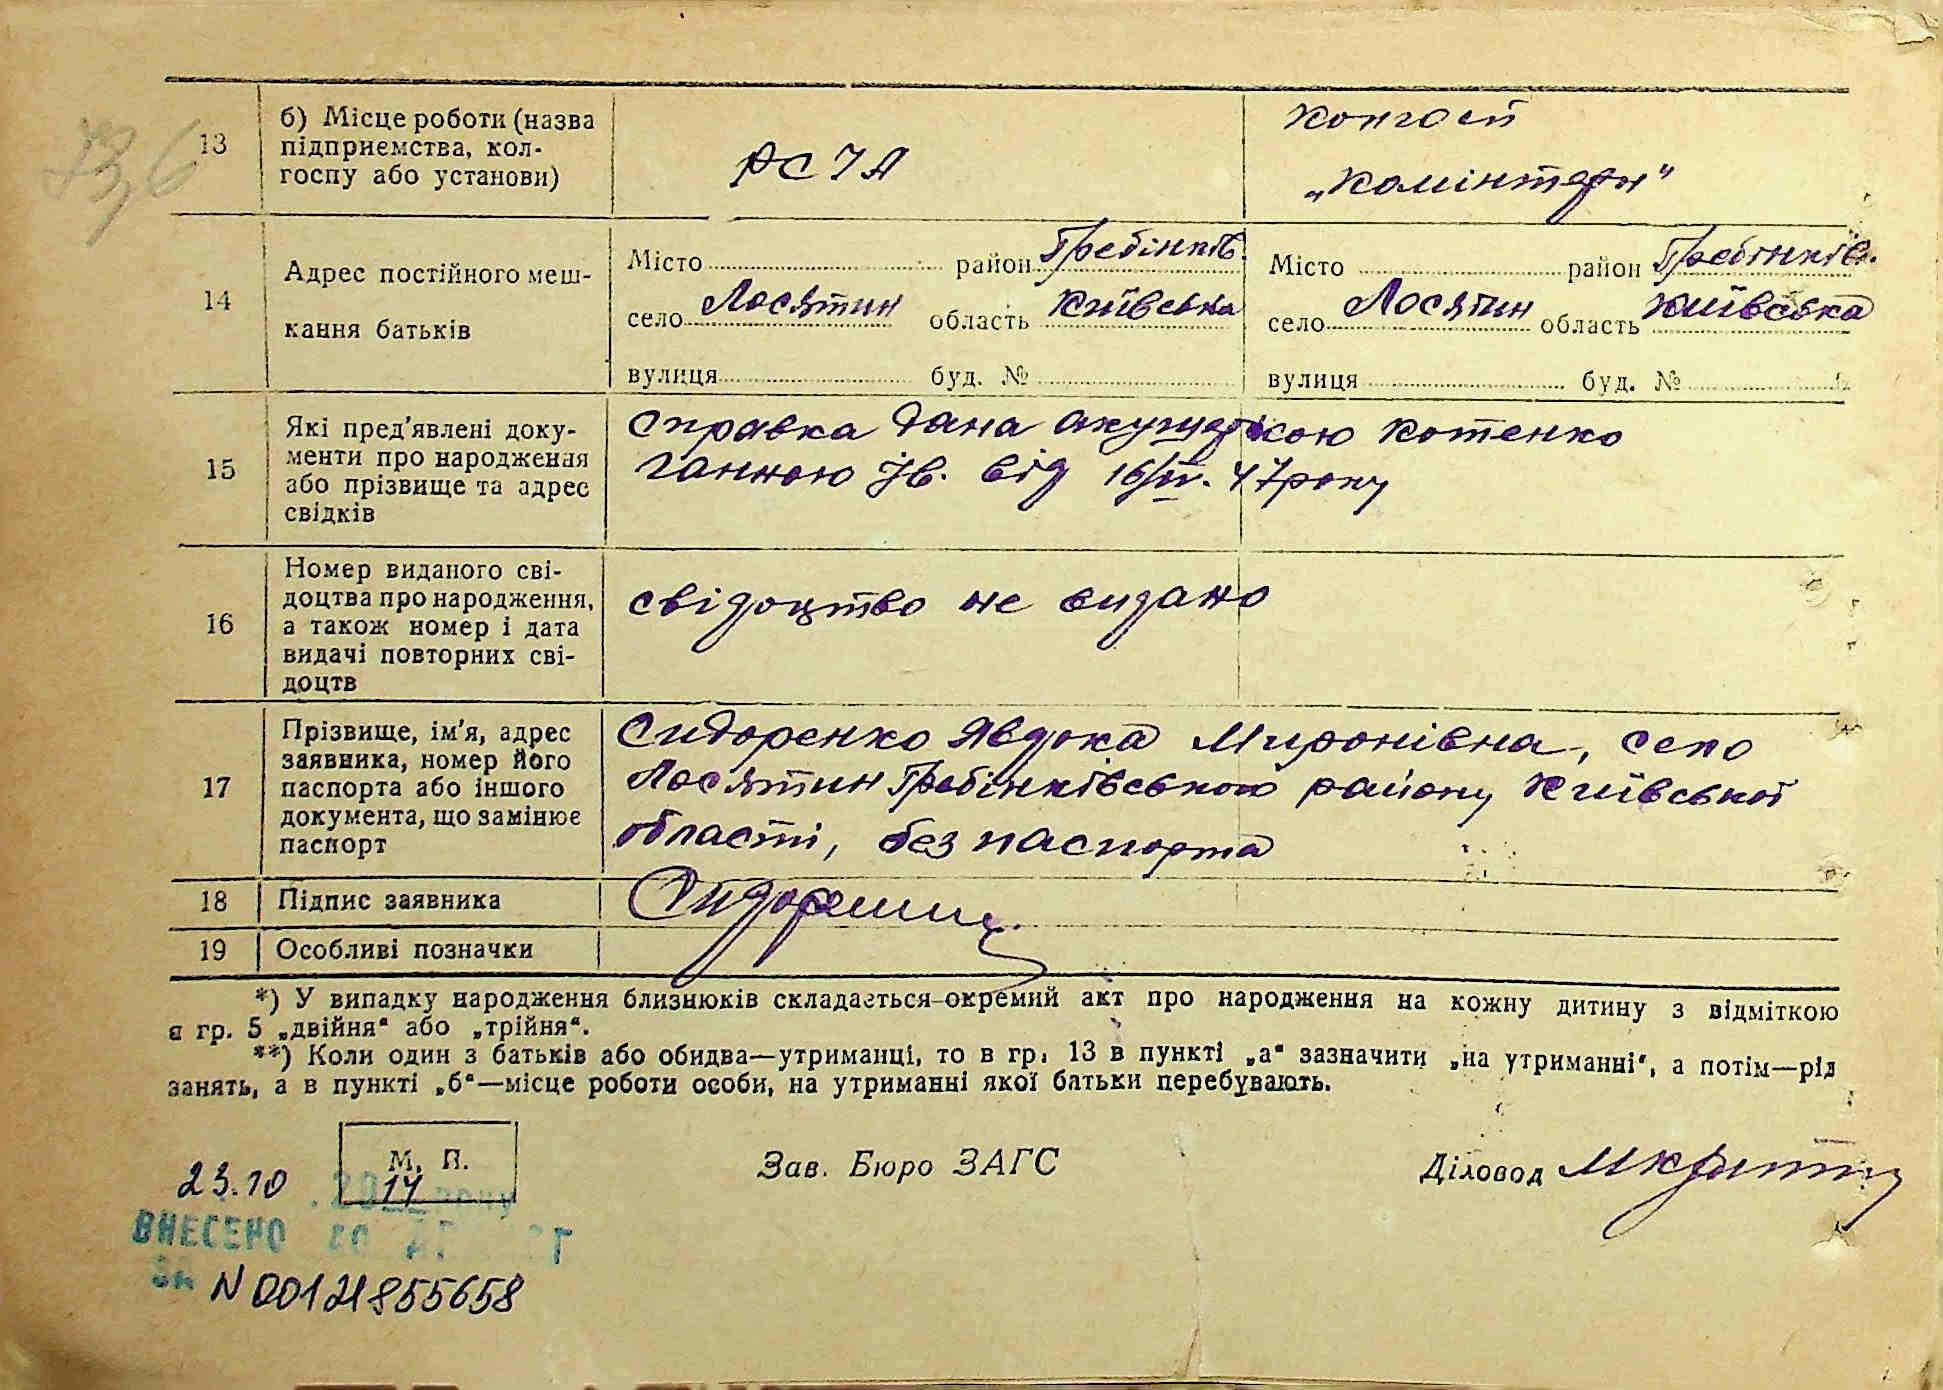 73,6
13
б) Місце роботи (назва
підприємства, кол-
госпу або установи)
РСЧА
колгосп
„Комінтерн"
14
Адрес постійного меш-
кання батьків
Місто район Гребінків.
село Лосятин область Київська
вулиця буд. №
Місто район Гребінків.
село Лосятин область Київська
вулиця буд. №
15
Які пред'явлені доку-
менти про народження
або прізвище та адрес
свідків
справка дана акушеркою Котенко
Ганною Ів. від 16/IV. 47 року
16
Номер виданого сві-
доцтва про народження,
а також номер і дата
видачі повторних сві-
доцтв
свідоцтво не видано
17
Прізвище, ім'я, адрес
заявника, номер його
паспорта або іншого
документа, що замінює
паспорт
Сидоренко Явдока Миронівна, село
Лосятин Гребінківського району Київської
області, без паспорта
18
Підпис заявника
19
Особливі позначки
*) У випадку народження близнюків складається окремий акт про народження на кожну дитину з відміткою
в гр. 5 „двійня“ або „трійня“.
**) Коли один з батьків або обидва—утриманці, то в гр. 13 в пункті „а“ зазначити „на утриманні“, а потім—рід
занять, а в пункті „б“—місце роботи особи, на утриманні якої батьки перебувають.
М. П.
23.10 .2014 року
ВНЕСЕНО до
за N 00121855658
Зав. Бюро ЗАГС
Діловод